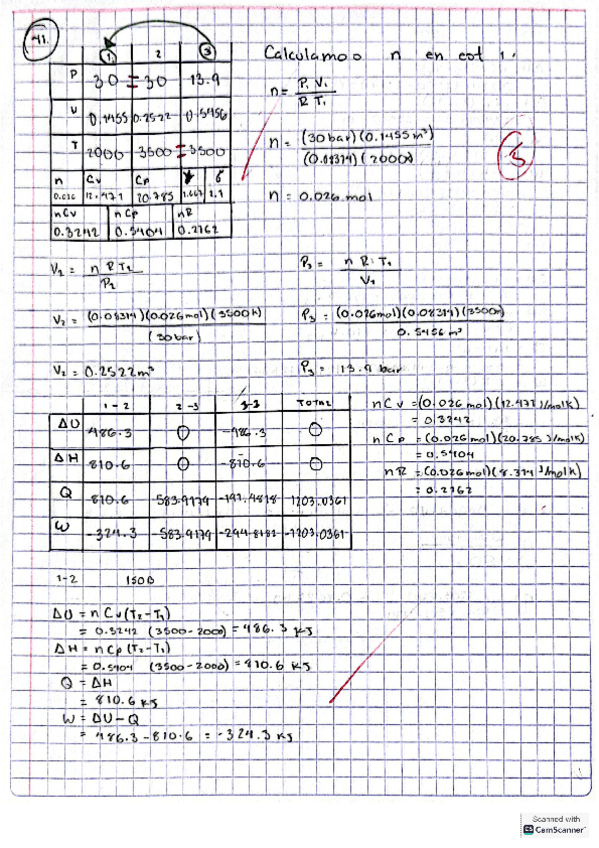 41.
1 2 3
P 30 = 30 13.9
V 0.1455 0.2522 0.5456
T 2000 3500 = 3500
n Cv Cp γ δ
0.026 12.471 20.785 1.667 1.1
nCv nCp nR
0.3242 0.5404 0.2162
Calculamos n en est 1.
n = P1 V1 / R T1
n = (30 bar)(0.1455 m³) / (0.08314)(2000)
n = 0.026 mol
5
V2 = n R T2 / P2
P3 = n R T2 / V3
V2 = (0.08314)(0.026 mol)(3500 K) / (30 bar)
P3 = (0.026 mol)(0.08314)(3500) / 0.5456 m³
V2 = 0.2522 m³
P3 = 13.9 bar
1-2 2-3 3-1 TOTAL
ΔU 486.3 0 -486.3 0
ΔH 810.6 0 -810.6 0
Q 810.6 583.9179 -191.4818 1203.0361
W -324.3 -583.9179 -294.8182 -1203.0361
nCv = (0.026 mol)(12.472 J/molK)
= 0.3242
nCp = (0.026 mol)(20.785 J/molK)
= 0.5404
nR = (0.026 mol)(8.314 J/molK)
= 0.2162
1-2 ISOB
ΔU = nCv(T2-T1)
= 0.3242 (3500-2000) = 486.3 KJ
ΔH = nCp (T2-T1)
= 0.5404 (3500-2000) = 810.6 KJ
Q = ΔH
= 810.6 KJ
W = ΔU-Q
= 486.3 - 810.6 = -324.3 KJ
Scanned with
CS CamScanner